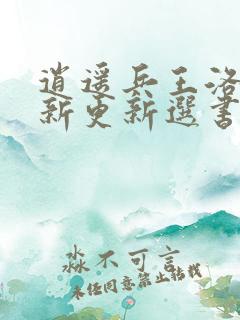 逍遥兵王洛
新更新选书
淼不可言
未经同意禁止转载